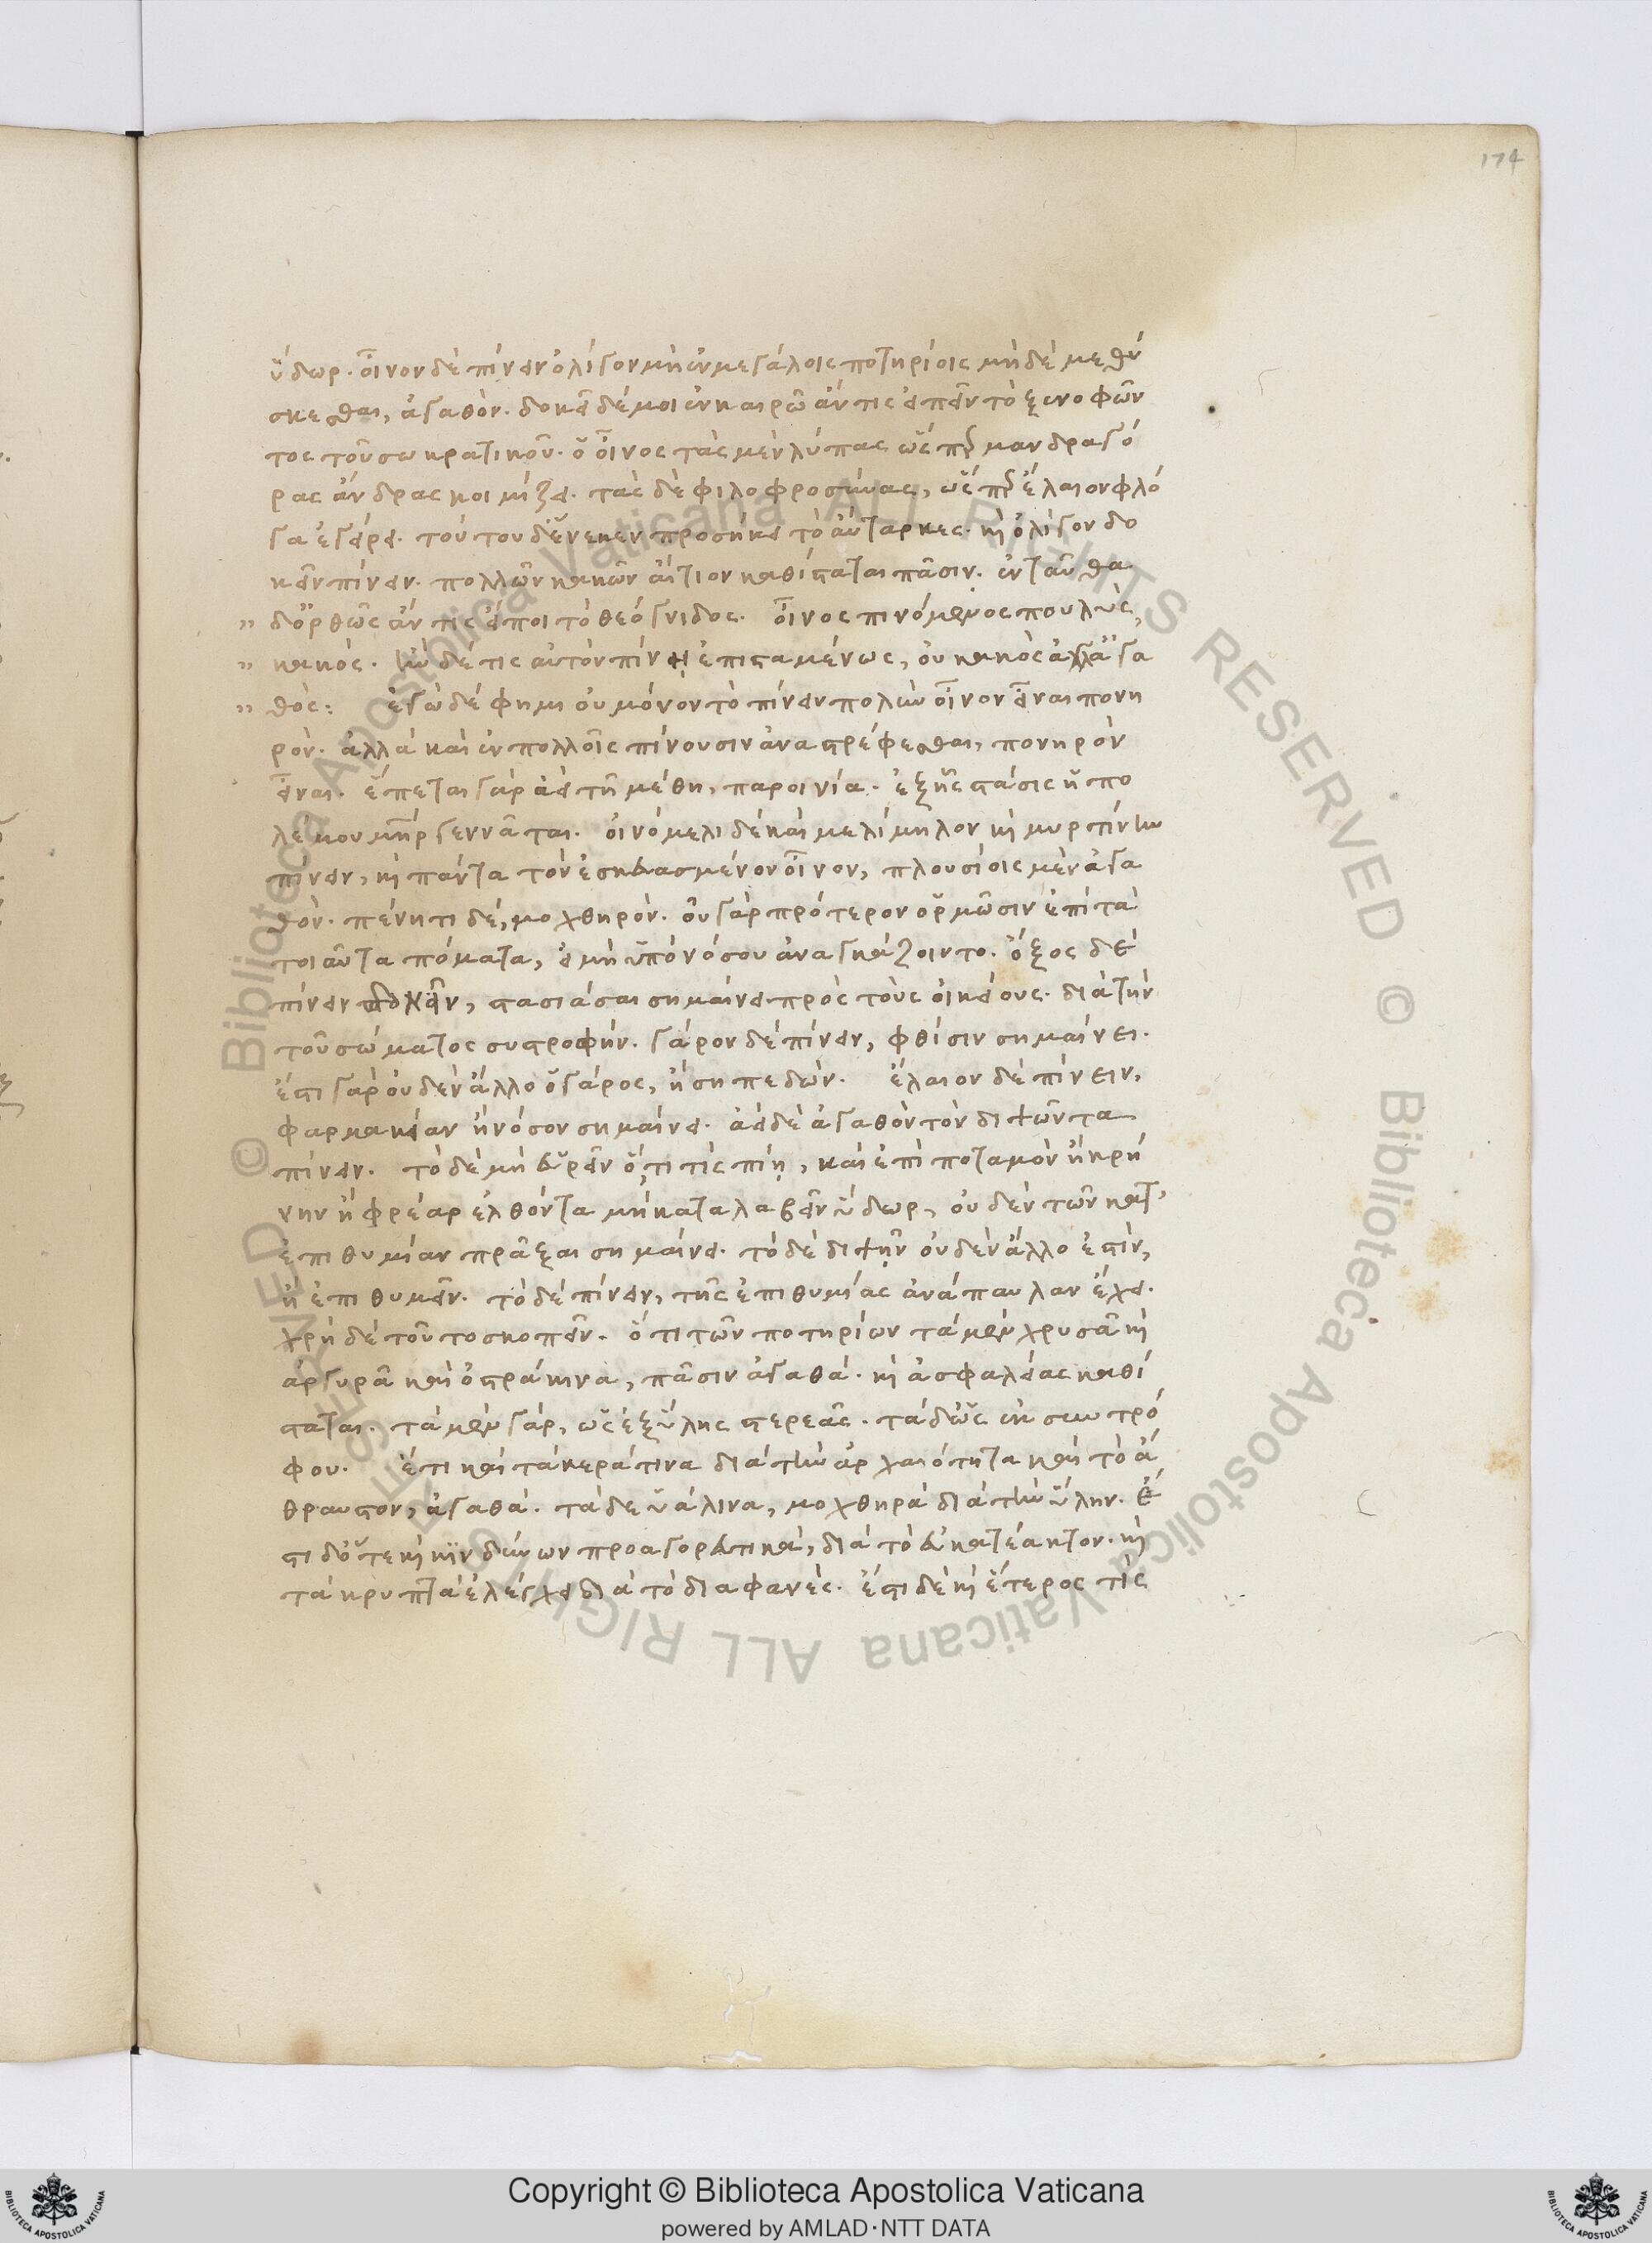 174
ὕδωρ. οἶνον δὲ πίνειν ὀλίγον μὴ ἐν μεγάλοις ποτηρίοις μηδὲ μεθύ
σκεσθαι, ἀγαθόν. δοκεῖ δέ μοι ἐν καιρῶ ἄν τις εἰπεῖν τὸ ξενοφῶν
τος τοῦ σωκρατικοῦ. ὁ οἶνος τὰς μὲν λύπας ὥσπερ μανδραγό
ρας ἄνδρας κοιμίζει. τὰς δὲ φιλοφροσύνας, ὥσπερ ἔλαιον φλό
γα ἐγείρει. τούτου δ' ἕνεκεν προσήκει τὸ αὔταρκες. καὶ ὀλίγον δο
κεῖν πίνειν. πολλῶν κακῶν αἴτιον καθίσταται πᾶσιν. ἐνταῦθα
δ' ὀρθῶς ἄν τις εἴποι τὸ θεόγνιδος. οἶνος πινόμενος πουλὺς,
κακός. ἢν δέ τις αὐτὸν πίνῃ ἐπισταμένως, οὐ κακὸς ἀλλ' ἀγα
θός: ἐγὼ δέ φημι οὐ μόνον τὸ πίνειν πολὺν οἶνον εἶναι πονη
ρόν. ἀλλὰ καὶ ἐν πολλοῖς πίνουσιν ἀναστρέφεσθαι, πονηρὸν
εἶναι. ἕπεται γὰρ ἀεὶ τῆ μέθη, παροινία. ἐξ ἧς στάσις ἢ πο
λέμου μῆτηρ γεννᾶται. οἰνόμελι δὲ καὶ μελίμηλον καὶ μυρτίνην
πίνειν, καὶ πάντα τὸν ἐσκευασμένον οἶνον, πλουσίοις μὲν ἀγα
θόν. πένητι δὲ, μοχθηρόν. οὐ γὰρ πρότερον ὁρμῶσιν ἐπὶ τὰ
τοιαῦτα πόματα, εἰ μὴ ὑπὸ νόσου ἀναγκάζοιντο. ὄξος δὲ
πίνειν δοκεῖν, στασιάσαι σημαίνει πρὸς τοὺς οἰκείους. διὰ τὴν
τοῦ σώματος συστροφήν. γάρον δὲ πίνειν, φθίσιν σημαίνει.
ἔστι γὰρ οὐδὲν ἄλλο ὁ γάρος, ἢ σηπεδών. ἔλαιον δὲ πίνειν,
φαρμακείαν ἢ νόσον σημαίνει. ἀεὶ δὲ ἀγαθὸν τὸν διψῶντα
πίνειν. τὸ δὲ μὴ εὑρεῖν ὅ,τι τίς πίῃ, καὶ ἐπὶ ποταμὸν ἢ κρή
νην ἢ φρέαρ ἐλθόντα μὴ καταλαβεῖν ὕδωρ, οὐδὲν τῶν κατ'
ἐπιθυμίαν πρᾶξαι σημαίνει. τὸ δὲ διψῆν οὐδὲν ἄλλο ἐστὶν,
ἢ ἐπιθυμεῖν. τὸ δὲ πίνειν, τῆς ἐπιθυμίας ἀνάπαυλαν ἔχει.
χρὴ δὲ τοῦτο σκοπεῖν. ὅτι τῶν ποτηρίων τὰ μὲν χρυσᾶ καὶ
ἀργυρᾶ καὶ ὀστράκινα, πᾶσιν ἀγαθὰ. καὶ ἀσφαλείας καθί
σταται. τὰ μὲν γάρ, ὡς ἐξ ὕλης στερεᾶς. τὰ δ' ὡς ἐκ συντρό
φου. ἔτι καὶ τὰ κεράτινα διὰ τὴν ἀρχαιότητα καὶ τὸ ἄ
θραυστον, ἀγαθά. τὰ δὲ ὑάλινα, μοχθηρὰ διὰ τὴν ὕλην. ἔ
στι δ' ὅτε καὶ κινδύνων προαγορευτικὰ, διὰ τὸ εὐκατέακτον. καὶ
τὰ κρυπτὰ ἐλέγχει διὰ τὸ διαφανές. ἔστι δὲ καὶ ἕτερος τίς
Copyright © Biblioteca Apostolica Vaticana
powered by AMLAD·NTT DATA